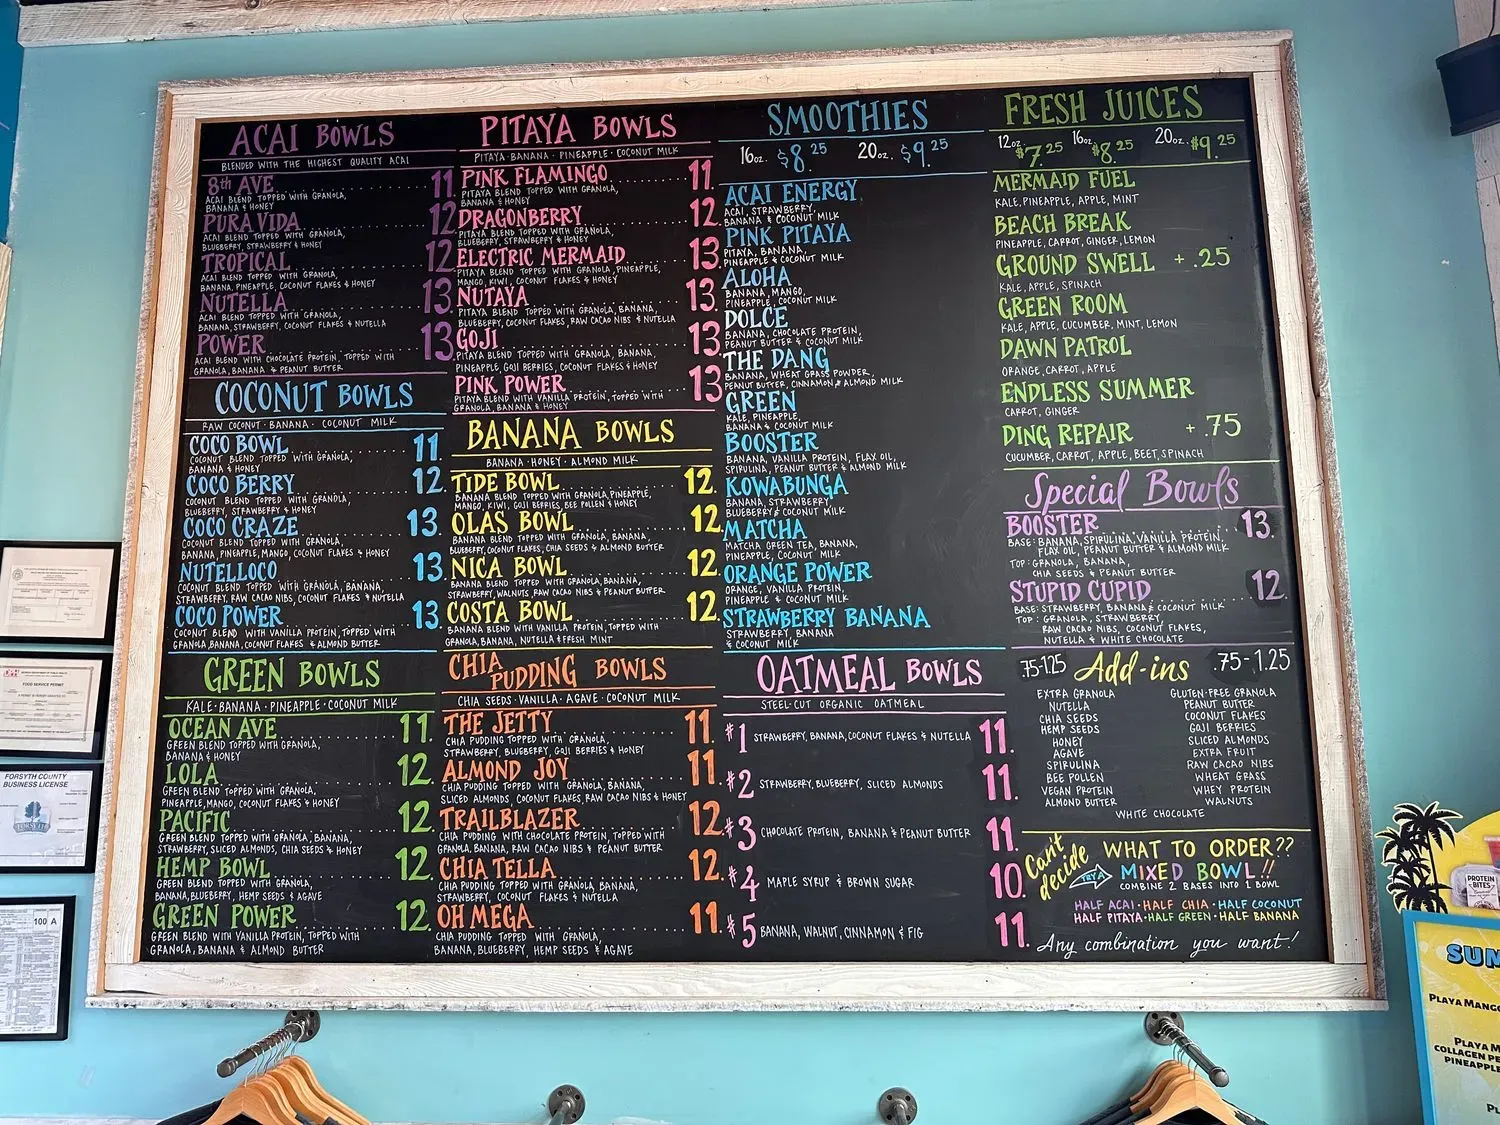 ACAI BOWLS
BLENDED WITH THE HIGHEST QUALITY ACAI
8th AVE 11.
ACAI BLEND TOPPED WITH GRANOLA,
BANANA & HONEY
PURA VIDA 12.
ACAI BLEND TOPPED WITH GRANOLA,
BLUEBERRY, STRAWBERRY & HONEY
TROPICAL 12.
ACAI BLEND TOPPED WITH GRANOLA,
BANANA, PINEAPPLE, COCONUT FLAKES & HONEY
NUTELLA 13.
ACAI BLEND TOPPED WITH GRANOLA,
BANANA, STRAWBERRY, COCONUT FLAKES & NUTELLA
POWER 13.
ACAI BLEND WITH CHOCOLATE PROTEIN, TOPPED WITH
GRANOLA, BANANA & PEANUT BUTTER
COCONUT BOWLS
RAW COCONUT · BANANA · COCONUT MILK
COCO BOWL 11.
COCONUT BLEND TOPPED WITH GRANOLA,
BANANA & HONEY
COCO BERRY 12.
COCONUT BLEND TOPPED WITH GRANOLA,
BLUEBERRY, STRAWBERRY & HONEY
COCO CRAZE 13
COCONUT BLEND TOPPED WITH GRANOLA,
BANANA, PINEAPPLE, MANGO, COCONUT FLAKES & HONEY
NUTELLOCO 13.
COCONUT BLEND TOPPED WITH GRANOLA, BANANA,
STRAWBERRY, RAW CACAO NIBS, COCONUT FLAKES & NUTELLA
COCO POWER 13
COCONUT BLEND WITH VANILLA PROTEIN, TOPPED WITH
GRANOLA, BANANA, COCONUT FLAKES & ALMOND BUTTER
GREEN BOWLS
KALE · BANANA · PINEAPPLE · COCONUT MILK
OCEAN AVE 11.
GREEN BLEND TOPPED WITH GRANOLA,
BANANA & HONEY
LOLA 12.
GREEN BLEND TOPPED WITH GRANOLA,
PINEAPPLE, MANGO, COCONUT FLAKES & HONEY
PACIFIC 12.
GREEN BLEND TOPPED WITH GRANOLA, BANANA,
STRAWBERRY, SLICED ALMONDS, CHIA SEEDS & HONEY
HEMP BOWL 12.
GREEN BLEND TOPPED WITH GRANOLA,
BANANA, BLUEBERRY, HEMP SEEDS & AGAVE
GREEN POWER 12.
GREEN BLEND WITH VANILLA PROTEIN, TOPPED WITH
GRANOLA, BANANA & ALMOND BUTTER
PITAYA BOWLS
PITAYA · BANANA · PINEAPPLE · COCONUT MILK
PINK FLAMINGO 11.
PITAYA BLEND TOPPED WITH GRANOLA,
BANANA & HONEY
DRAGONBERRY 12.
PITAYA BLEND TOPPED WITH GRANOLA,
BLUEBERRY, STRAWBERRY & HONEY
ELECTRIC MERMAID 13.
PITAYA BLEND TOPPED WITH GRANOLA, PINEAPPLE,
MANGO, KIWI, COCONUT FLAKES & HONEY
NUTAYA 13.
PITAYA BLEND TOPPED WITH GRANOLA, BANANA,
BLUEBERRY, COCONUT FLAKES, RAW CACAO NIBS & NUTELLA
GOJI 13
PITAYA BLEND TOPPED WITH GRANOLA, BANANA,
PINEAPPLE, GOJI BERRIES, COCONUT FLAKES & HONEY
PINK POWER 13
PITAYA BLEND WITH VANILLA PROTEIN, TOPPED WITH
GRANOLA, BANANA & HONEY
BANANA BOWLS
BANANA · HONEY · ALMOND MILK
TIDE BOWL 12.
BANANA BLEND TOPPED WITH GRANOLA, PINEAPPLE,
MANGO, KIWI, GOJI BERRIES, BEE POLLEN & HONEY
OLAS BOWL 12.
BANANA BLEND TOPPED WITH GRANOLA, BANANA,
BLUEBERRY, COCONUT FLAKES, CHIA SEEDS & ALMOND BUTTER
NICA BOWL 12.
BANANA BLEND TOPPED WITH GRANOLA, BANANA,
STRAWBERRY, WALNUTS, RAW CACAO NIBS & PEANUT BUTTER
COSTA BOWL 12.
BANANA BLEND WITH VANILLA PROTEIN, TOPPED WITH
GRANOLA, BANANA, NUTELLA & FRESH MINT
CHIA PUDDING BOWLS
CHIA SEEDS · VANILLA · AGAVE · COCONUT MILK
THE JETTY 11.
CHIA PUDDING TOPPED WITH GRANOLA,
STRAWBERRY, BLUEBERRY, GOJI BERRIES & HONEY
ALMOND JOY 11.
CHIA PUDDING TOPPED WITH GRANOLA, BANANA,
SLICED ALMONDS, COCONUT FLAKES, RAW CACAO NIBS & HONEY
TRAILBLAZER 12.
CHIA PUDDING WITH CHOCOLATE PROTEIN, TOPPED WITH
GRANOLA, BANANA, RAW CACAO NIBS & PEANUT BUTTER
CHIA TELLA 12.
CHIA PUDDING TOPPED WITH GRANOLA, BANANA,
STRAWBERRY, COCONUT FLAKES & NUTELLA
OH MEGA 11.
CHIA PUDDING TOPPED WITH GRANOLA,
BANANA, BLUEBERRY, HEMP SEEDS & AGAVE
SMOOTHIES
16oz. $8.25 20oz. $9.25
ACAI ENERGY
ACAI, STRAWBERRY,
BANANA & COCONUT MILK
PINK PITAYA
PITAYA, BANANA,
PINEAPPLE & COCONUT MILK
ALOHA
BANANA, MANGO,
PINEAPPLE, COCONUT MILK
DOLCE
BANANA, CHOCOLATE PROTEIN,
PEANUT BUTTER & COCONUT MILK
THE DANG
BANANA, WHEAT GRASS POWDER,
PEANUT BUTTER, CINNAMON & ALMOND MILK
GREEN
KALE, PINEAPPLE,
BANANA & COCONUT MILK
BOOSTER
BANANA, VANILLA PROTEIN, FLAX OIL,
SPIRULINA, PEANUT BUTTER & ALMOND MILK
KOWABUNGA
BANANA, STRAWBERRY,
BLUEBERRY & COCONUT MILK
MATCHA
MATCHA GREEN TEA, BANANA,
PINEAPPLE, COCONUT MILK
ORANGE POWER
ORANGE, VANILLA PROTEIN,
PINEAPPLE & COCONUT MILK
STRAWBERRY BANANA
STRAWBERRY, BANANA
& COCONUT MILK
OATMEAL BOWLS
STEEL-CUT ORGANIC OATMEAL
#1 STRAWBERRY, BANANA, COCONUT FLAKES & NUTELLA 11.
#2 STRAWBERRY, BLUEBERRY, SLICED ALMONDS 11.
#3 CHOCOLATE PROTEIN, BANANA & PEANUT BUTTER 11.
#4 MAPLE SYRUP & BROWN SUGAR 10.
#5 BANANA, WALNUT, CINNAMON & FIG 11.
FRESH JUICES
12oz. $7.25 16oz. $8.25 20oz. $9.25
MERMAID FUEL
KALE, PINEAPPLE, APPLE, MINT
BEACH BREAK
PINEAPPLE, CARROT, GINGER, LEMON
GROUND SWELL + .25
KALE, APPLE, SPINACH
GREEN ROOM
KALE, APPLE, CUCUMBER, MINT, LEMON
DAWN PATROL
ORANGE, CARROT, APPLE
ENDLESS SUMMER
CARROT, GINGER
DING REPAIR + .75
CUCUMBER, CARROT, APPLE, BEET, SPINACH
Special Bowls
BOOSTER 13.
BASE: BANANA, SPIRULINA, VANILLA PROTEIN,
FLAX OIL, PEANUT BUTTER & ALMOND MILK
TOP: GRANOLA, BANANA,
CHIA SEEDS & PEANUT BUTTER
STUPID CUPID 12.
BASE: STRAWBERRY, BANANA & COCONUT MILK
TOP: GRANOLA, STRAWBERRY,
RAW CACAO NIBS, COCONUT FLAKES,
NUTELLA & WHITE CHOCOLATE
.75-1.25 Add-ins .75-1.25
EXTRA GRANOLA
NUTELLA
CHIA SEEDS
HEMP SEEDS
HONEY
AGAVE
SPIRULINA
BEE POLLEN
VEGAN PROTEIN
ALMOND BUTTER
GLUTEN-FREE GRANOLA
PEANUT BUTTER
COCONUT FLAKES
GOJI BERRIES
SLICED ALMONDS
EXTRA FRUIT
RAW CACAO NIBS
WHEAT GRASS
WHEY PROTEIN
WALNUTS
WHITE CHOCOLATE
Can't decide
WHAT TO ORDER??
TRY A MIXED BOWL!!
COMBINE 2 BASES INTO 1 BOWL
HALF ACAI · HALF CHIA · HALF COCONUT
HALF PITAYA · HALF GREEN · HALF BANANA
Any combination you want!
FOOD SERVICE PERMIT
FORSYTH COUNTY
BUSINESS LICENSE
FORSYTH
100 A
PROTEIN
BITES
SUM
PLAYA MANGO
PLAYA M
COLLAGEN PE
PINEAPPLE
PL